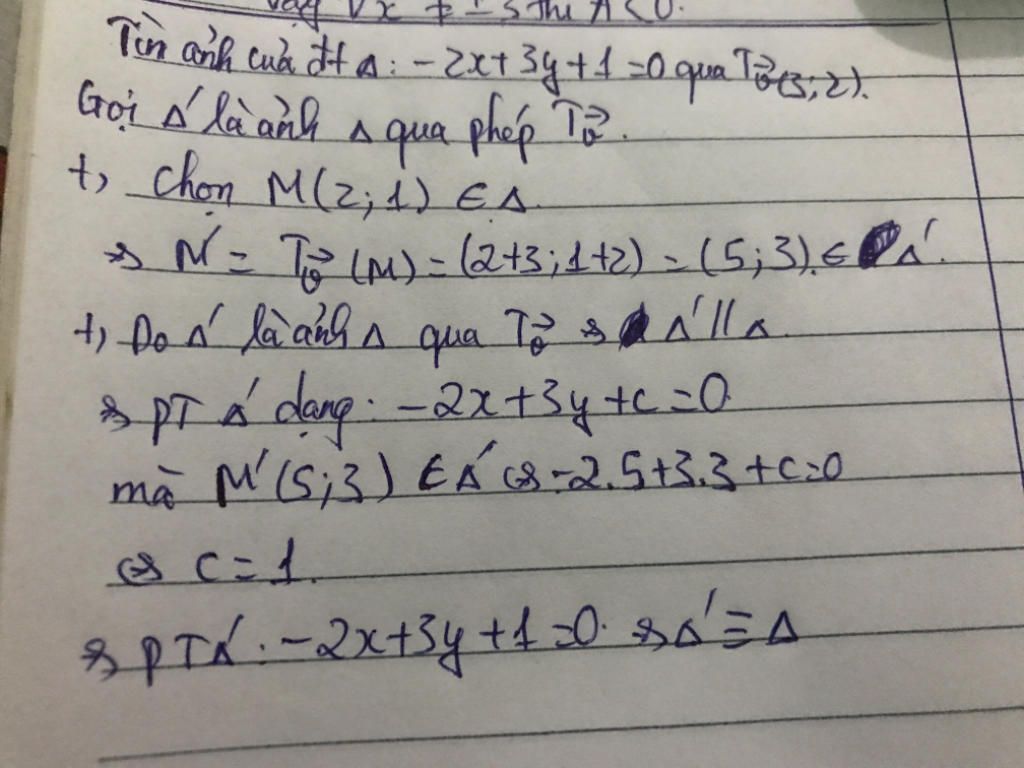 Vậy ∀x ≠ ±3 thì A<0.
Tìm ảnh của đt Δ: -2x+3y+1=0 qua Tv⃗(3;2).
Gọi Δ' là ảnh Δ qua phép Tv⃗.
+, Chọn M(2;1) ∈ Δ
⇒ M' = Tv⃗(M) = (2+3;1+2) = (5;3). ∈ Δ'.
+, Do Δ' là ảnh Δ qua Tv⃗ ⇒ Δ' // Δ.
⇒ PT Δ' dạng: -2x+3y+c=0
mà M'(5;3) ∈ Δ' ⇔ -2.5+3.3+c=0
⇔ c=1.
⇒ PTΔ': -2x+3y+1=0. ⇒ Δ' ≡ Δ